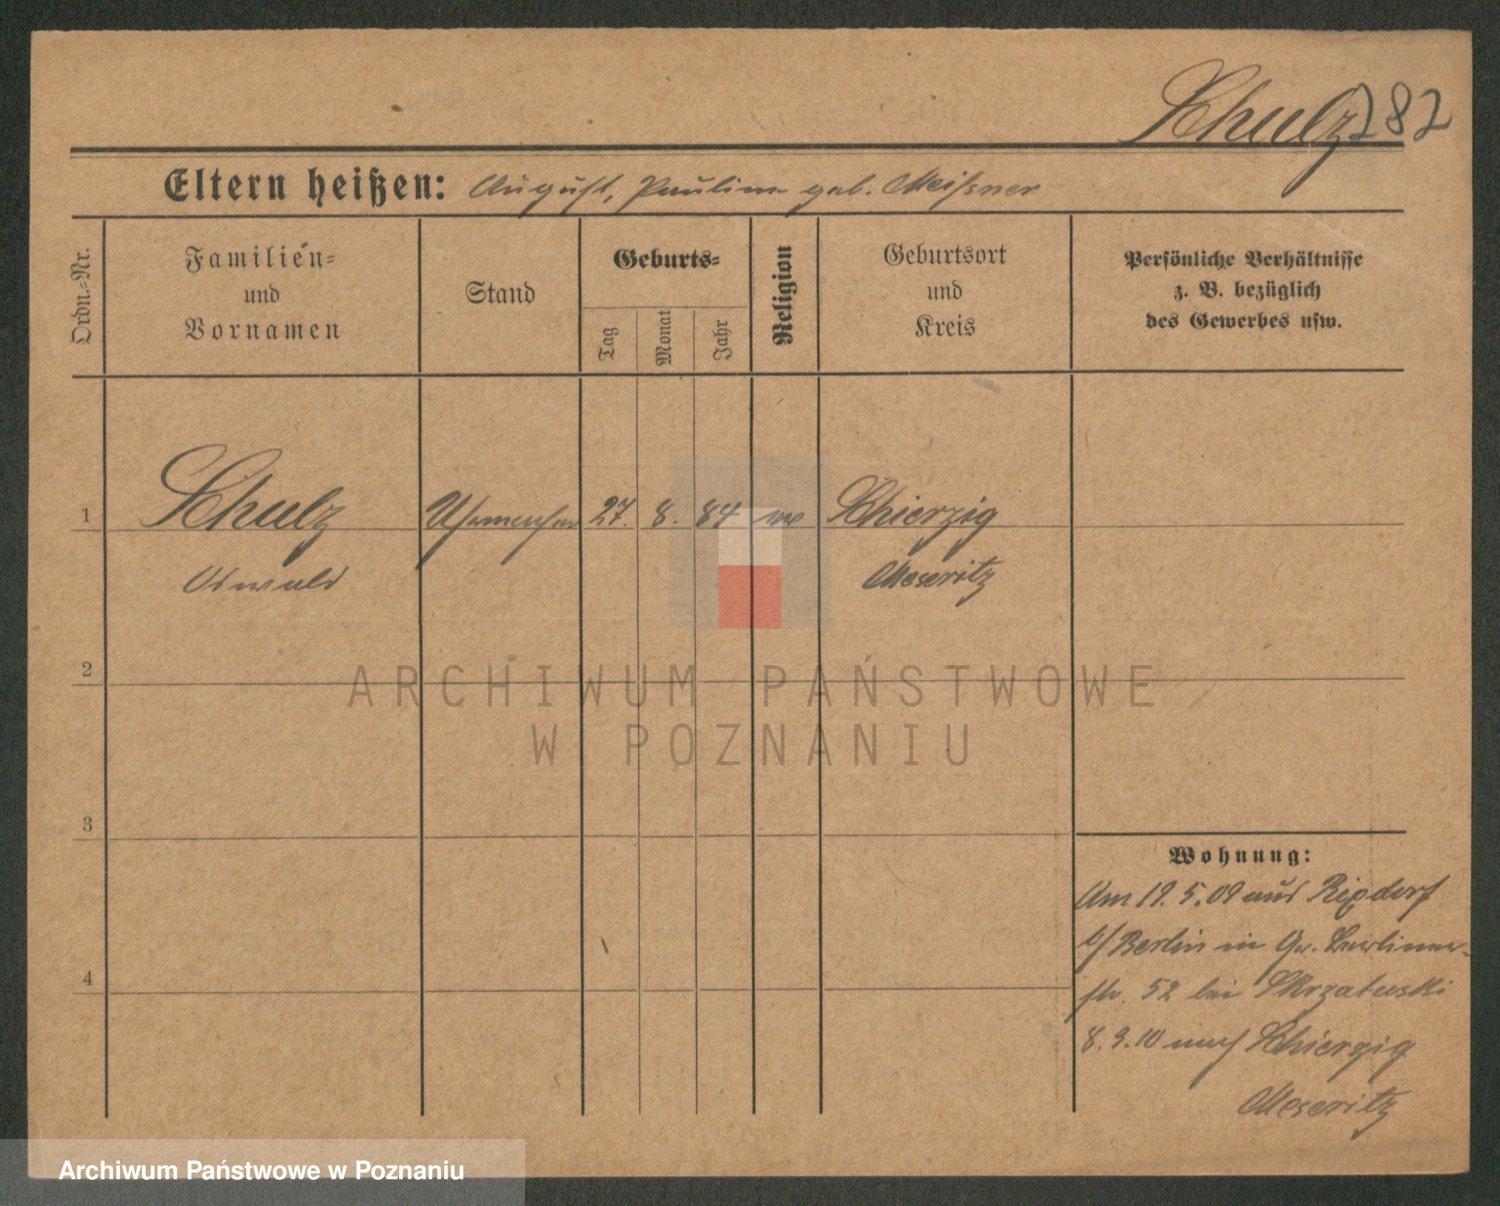 Schulz 282
Eltern heißen: August, Pauline geb. Meißner
Ordn.-Nr.
Familien-
und
Vornamen
Stand
Geburts-
Tag
Monat
Jahr
Religion
Geburtsort
und
Kreis
Persönliche Verhältnisse
z. B. bezüglich
des Gewerbes usw.
1 Schulz Uhrmacher 27. 8. 84 Schierzig
Oswald Meseritz
2
3
4
Wohnung:
Am 19. 5. 09 aus Rixdorf
b/ Berlin in Gr. Berliner-
str. 52 bei Skrzatuski
8. 9. 10 nach Schierzig
Meseritz
ARCHIWUM PAŃSTWOWE
W POZNANIU
Archiwum Państwowe w Poznaniu